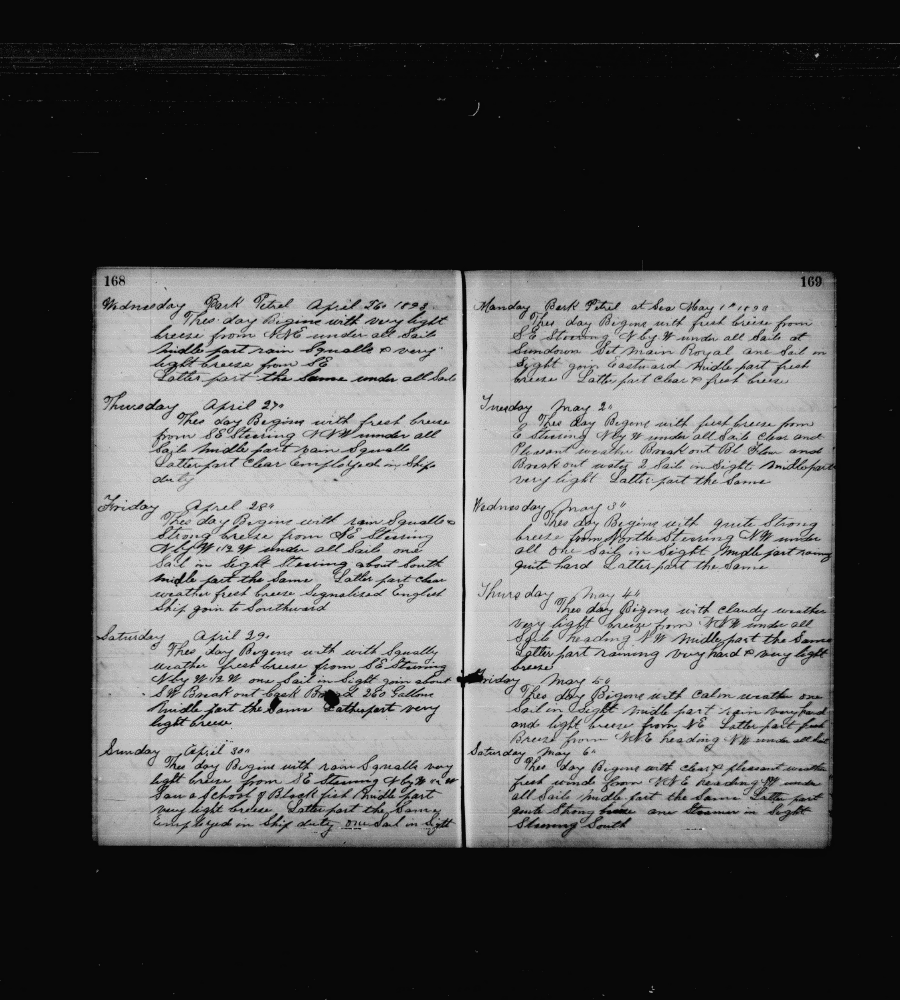 168
Wednesday Bark Petrel April 26 1893
Thes day Begins with very light
breise from NNE under all Sails
midle part rain Squalls & very
light breise from SE
Latter part the Same under all Sails
Thursday April 27"
Thes day Begins with fresh breise
from SE Steering NNW under all
Sails midle part rain Squalls
Latter part Clear Employed in Ships
duty
Friday April 28"
Thes day Begins with rain Squalls &
Strong breise from SE Steering
N by W 1/2 W under all Sails one
Sail in Sight Steering about South
midle part the Same Latter part clear
weather fresh breise Signalised English
Ship goin to Southward
Saturday April 29"
Thes day Begins with with Squally
weather fresh breise from SE Steering
N by W 1/2 W one Sail in Sight goin about
SW Break out Cask 260 Gallons
Midle part the Same Latter part very
light breise
Sunday April 30"
Thes day Begins with rain Squalls very
light breise from SE Steering N by W 1/2 W
Saw a School of Black fish Midle part
very light breise Latter part the Same
Employed in Ship duty one Sail in Sight
169
Monday Bark Petrel at Sea May 1" 1893
Thes day Begins with fresh breise from
SE steering N by W under all Sails at
Sundown Set main Royal one Sail in
Sight goin Eastward Midle part fresh
breise Latter part Clear & fresh breise
Tuesday May 2"
Thes day Begins with fresh breise from
E Steering N by W under all Sails Clear and
Pleasant weather Break out Bl Flour and
Break out water 2 Sail in Sight Midle part
very light Latter part the Same
Wednesday May 3"
Thes day Begins with quite Strong
breise from Northe Steering NW under
all One Sail in Sight Midle part raing
quite hard Latter part the Same
Thursday May 4"
Thes day Begins with Claudy weather
very light breise from NNW under all
Sails heading NW Midle part the Same
Latter part raining very hard & very light
breise
Friday May 5"
Thes day Begins with Calm weather one
Sail in Sight midle part rain very hard
and light breise from NE Latter part fresh
Breise from NNE heading NW under all Sail
Saturday May 6"
Thes day Begins with Clear & pleasant weather
fresh winds from NNE heading NW under
all Sails midle part the Same Latter part
quite Strong breise one Steamer in Sight
Steering South